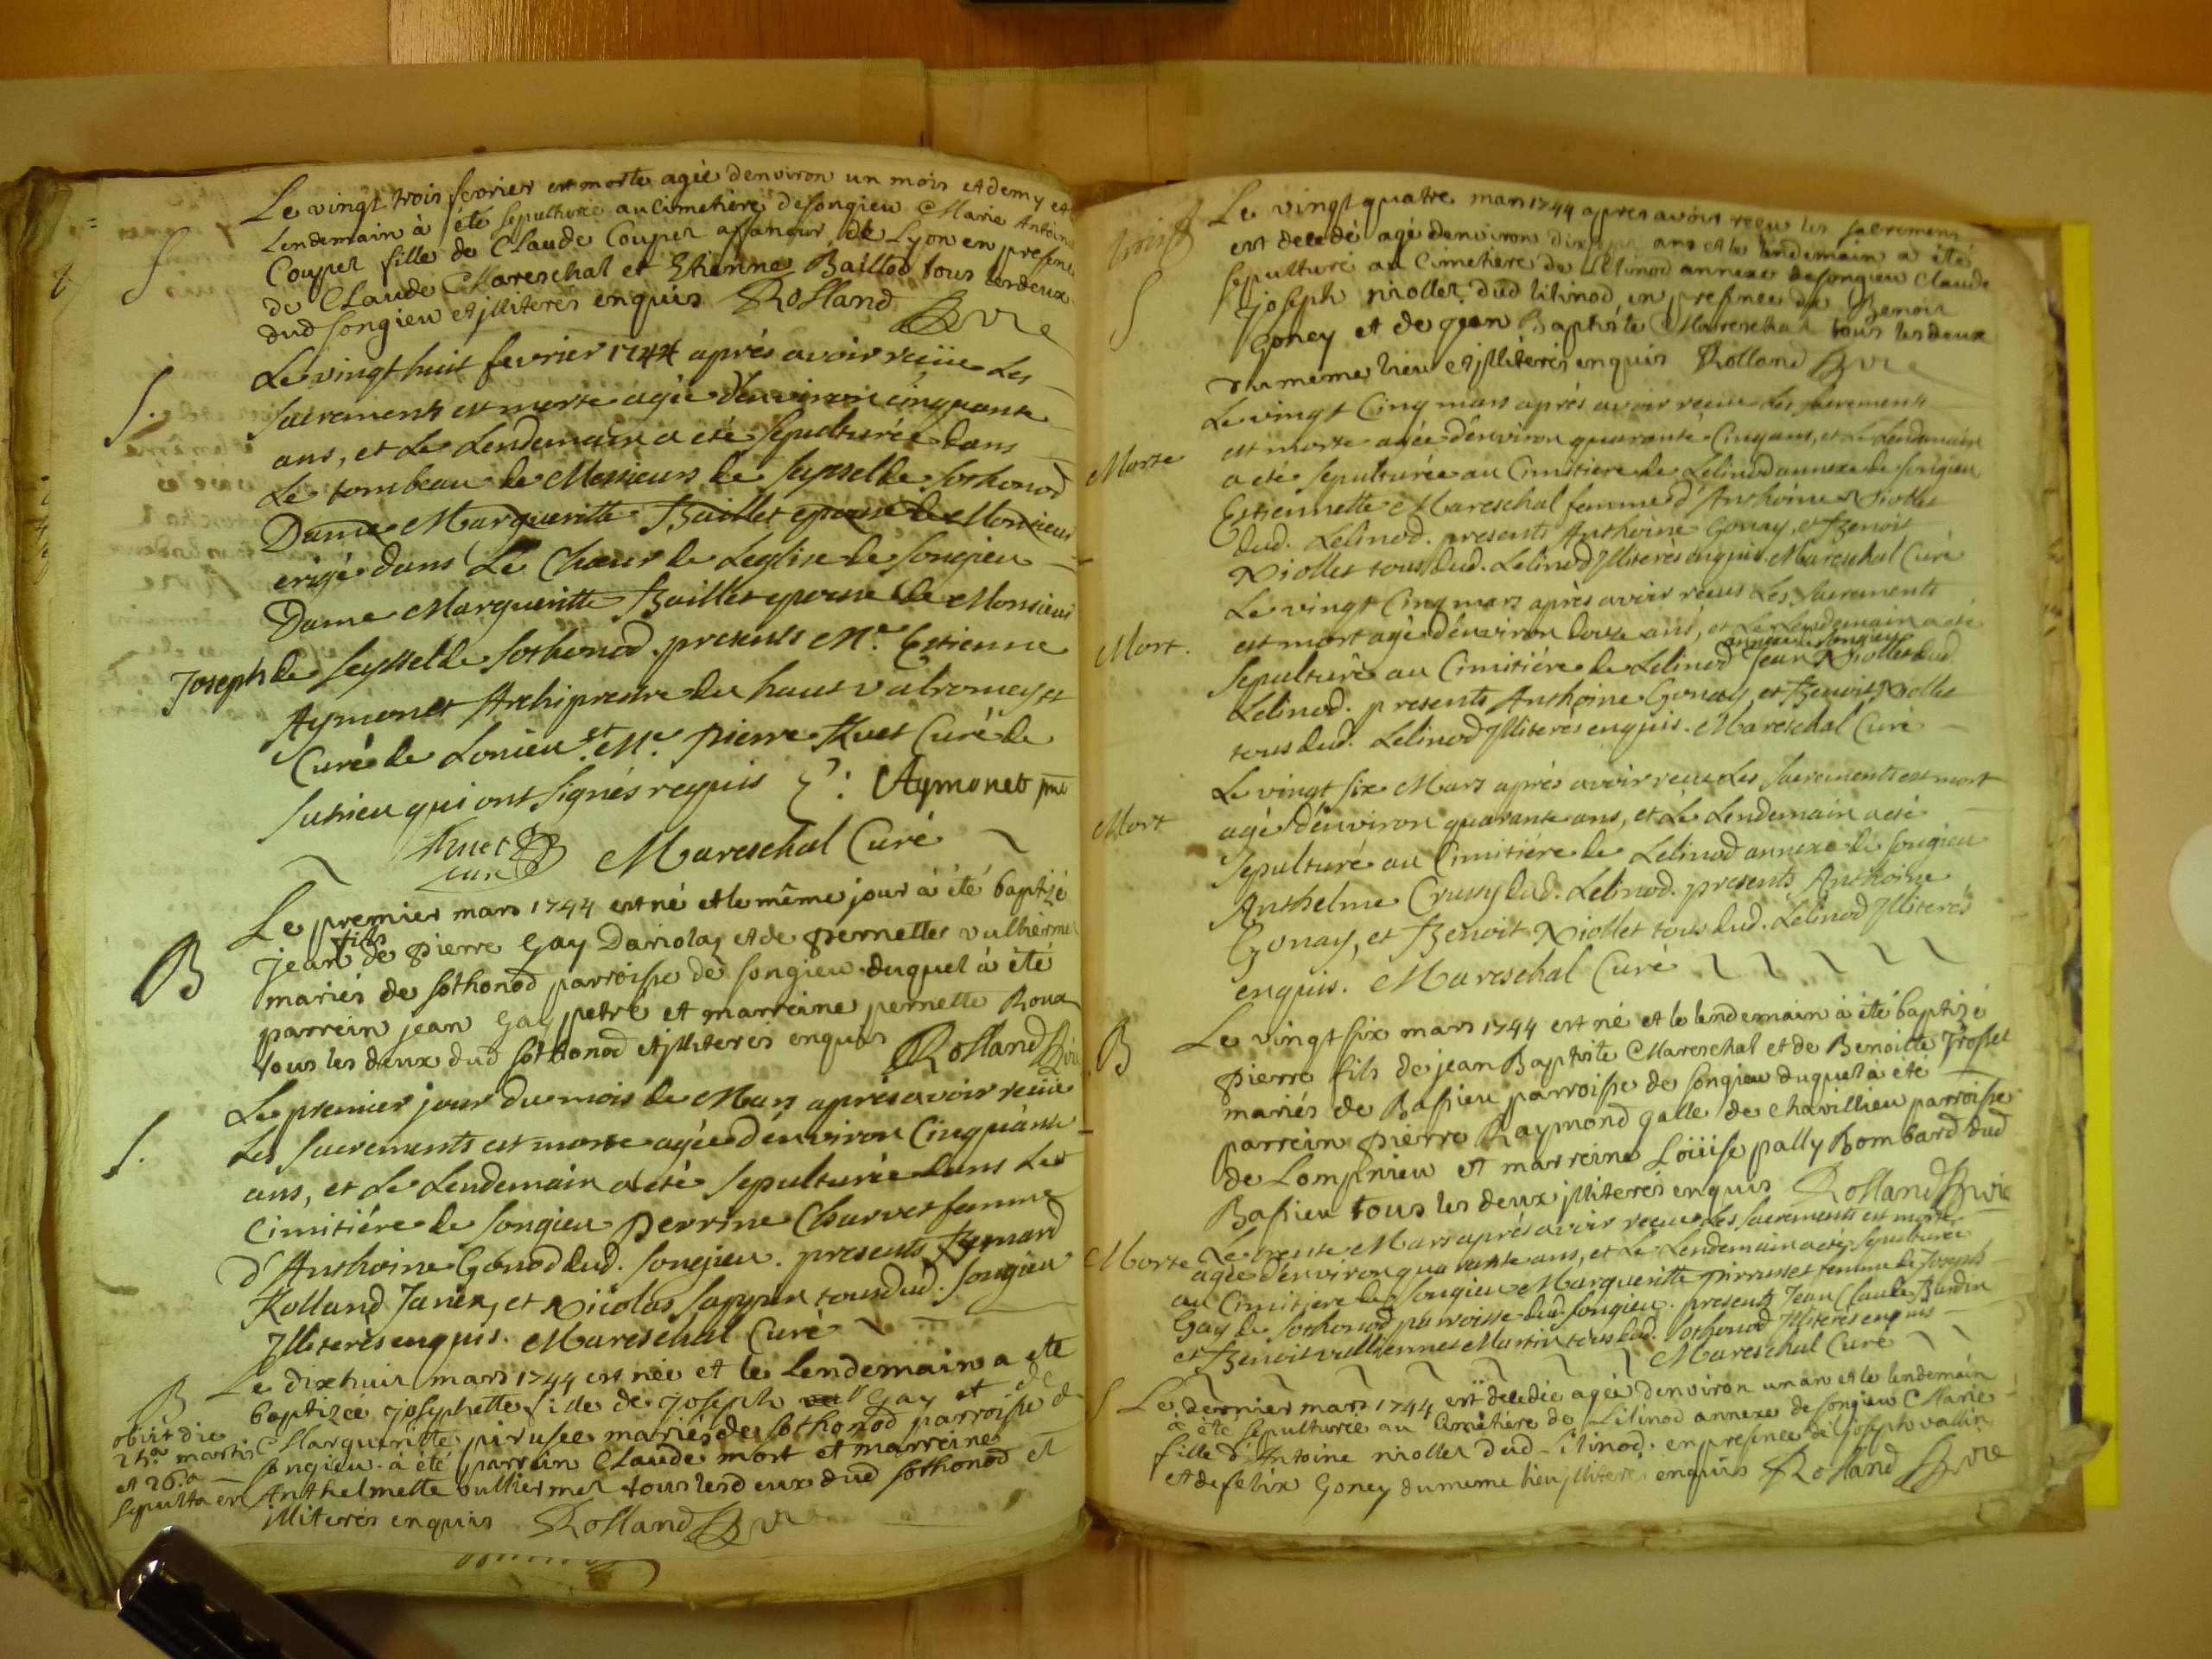 Le vingt trois fevrier est morte agée denviron un mois et demy et
Lendemain à été sepulturée au Cimetiére de songieu Marie Antoin
Coupel fille de Claude Coupel affaneur de Lyon en presence
de Claude Mareschal et Etienne Baillod tous les deux
dud songieu et jlliterés enquis Rolland
S
Le vingt huit fevrier 1744 aprés avoir reçüe Les
S.
Sacrements est morte agée d'environ cinquante
ans, et Le Lendemain a eté sepulturée dans
Le tombeau de Messieurs de Seyssel de Sothonod
Dame Margueritte Baillet epouse de Monsieur
erigé dans Le Chœur de Leglise de Songieu
Dame Margueritte Baillet epouse de Monsieur
Joseph de Seyssel de Sothonod. presents Mr. Estienne
Aymonet Archiprestre du haut valromey et
Curé de Lonieu et Mr. pierre huet Curé de
Sutrieu qui ont Signés requis : Aymonet
huet curé Mareschal Curé
Le premier mars 1744 est né et le même jour à été baptizé
B
Jean fils de pierre Gay Dariolaz et de pernette vulliermet
mariés de sothonod parroisse de songieu duquel à été
parrein jean Gay petre et marreine pernette Roux
tous les deux dud sothonod et jlliterés enquis Rolland
Le premier jour du mois de Mars aprés avoir reçüe
S.
Les Sacrements est morte agée d'énviron Cinquante
ans, et Le Lendemain a eté Sepulturée dans Le
Cimitiére de Songieu perrine Charvet femme
d'Anthoine Gonod dud. Songieu. presents Bernard
Rolland Janin, et Nicolas Sappin tous dud. Songieu
Illiterés enquis. Mareschal Curé
B
Le dixhuit mars 1744 est née et le Lendemain a eté
baptizée Josephette fille de Joseph Gay et de
Margueritte pirusee mariés de Sothonod parroisse de
songieu. à été parrain Claude mort et marreine
Anthelmette vulliermet tous les deux dud sothonod et
jlliterés enquis Rolland
obiit die
martis
et 26.a
sepulta
Le vingt quatre mars 1744 apres avoir reçu les sacremens
est decedé agé denviron ans et le lendemain a été
S
sepulturé au Cimetiére de Lilinod annexe de songieu Claude
Joseph niollet dud lilinod, en presence de Benoit
Goney et de jean Baptiste Mareschal tous les deux
du meme lieu et jlliterés enquis Rolland
Le vingt Cinq mars aprés avoir reçüe Les Sacrements
Morte
est morte agée d'énviron quarante Cinq ans, et Le Lendemain
a eté Sepulturée au Cimitiere de Lelinod annexe de Songieu
Estiennette Mareschal femme d'Anthoine Niollet
dud. Lelinod. presents Anthoine Gonay, et Benoit
Niollet tous dud. Lelinod Illiterés enquis. Mareschal Curé
Le vingt Cinq mars aprés avoir reçus Les Sacrements
Mort.
est mort agé d'énviron douze ans, et Le Lendemain a eté
annexe de Songieu
Sepulturé au Cimitiére de Lelinod Jean Niollet dud.
Lelinod. presents Anthoine Gonay, et Benoit Niollet
tous dud. Lelinod Illiterés enquis. Mareschal Curé
Le vingt Six Mars aprés avoir reçu Les Sacrements est mort
Mort
agé d'énviron quarante ans, et Le Lendemain a eté
Sepulturé au Cimitiére de Lelinod annexe de Songieu
Anthelme Crussy dud. Lelinod. presents Anthoine
Gonay, et Benoit Niollet tous dud. Lelinod Illiterés
enquis. Mareschal Curé
B
Le vingt six mars 1744 est né et le lendemain à été baptizé
pierre fils de jean Baptiste Mareschal et de Benoitte Trosset
mariés de Bassieu parroisse de songieu duquel a été
parrein pierre Raymond galle de chavillieu parroisse
de Lompnieu et marreine Loüise pally Bombard dud
Bassieu tous les deux jlliterés enquis Rolland
Morte
Le trente Mars aprés avoir reçüe Les Sacrements est morte
agée d'énviron quarante ans, et Le Lendemain a eté Sepulturée
au Cimitiere de Songieu Margueritte pirrusset femme de Joseph
Gay de Sothonod parroisse dud. Songieu. presents Jean Claude Burdin
et Benoit vulliermet Martin tous dud. Sothonod Illiterés enquis
Mareschal Curé
S
Le dernier mars 1744 est decedée agée denviron un an et le lendemain
à été sepulturée au Cimetiére de Lilinod annexe de songieu Marie
fille d'Antoine niollet dud Lilinod, en presence de joseph vallin
et de felix Goney du meme lieu jlliterés enquis Rolland